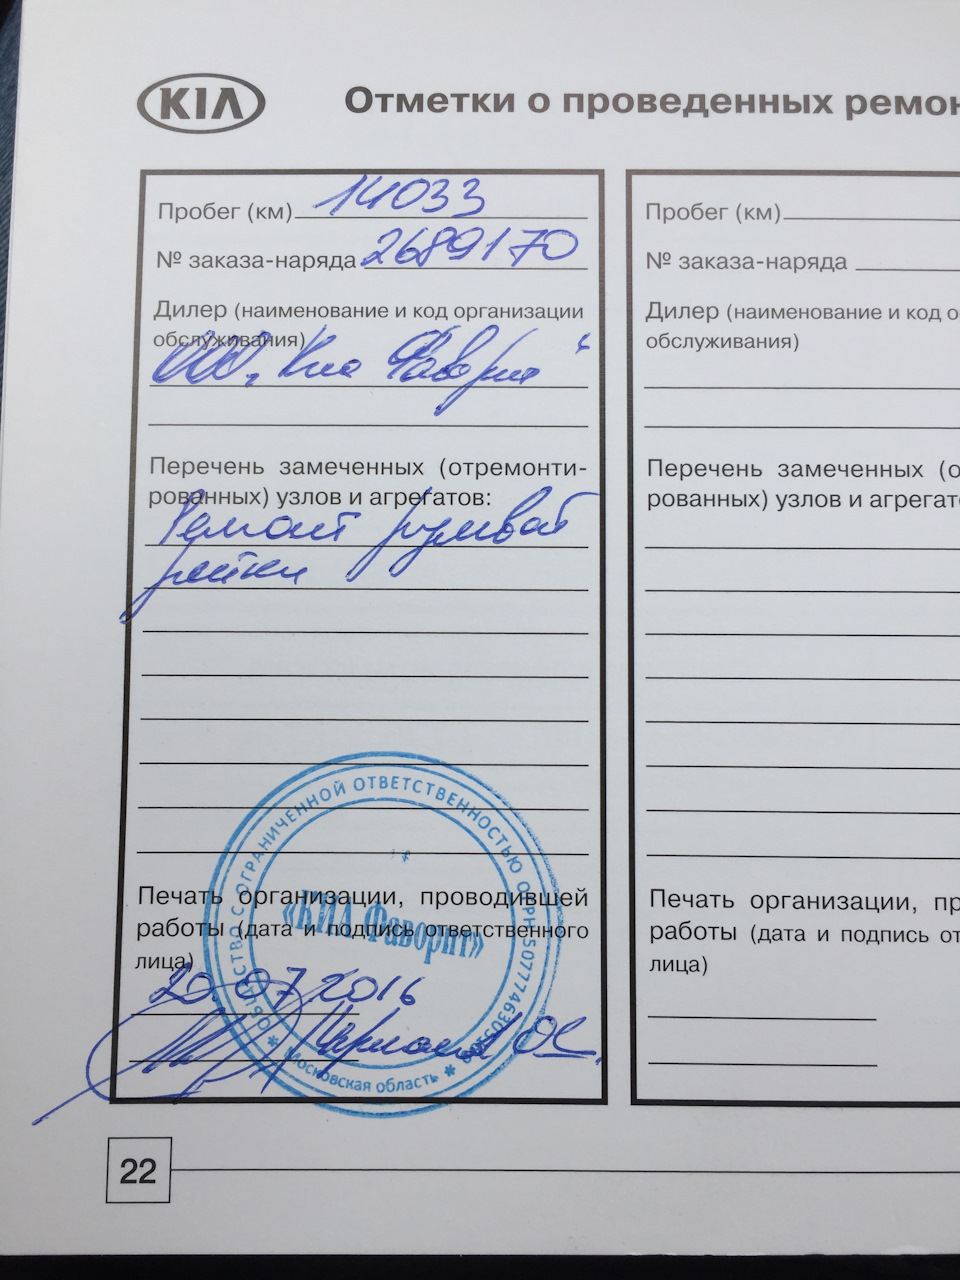 KIA
Отметки о проведенных ремон
Пробег (км) 14033
№ заказа-наряда 2689170
Дилер (наименование и код организации
обслуживания)
ООО "Киа Фаворит"
Перечень замеченных (отремонти-
рованных) узлов и агрегатов:
Ремонт рулевой
рейки
Печать организации, проводившей
работы (дата и подпись ответственного
лица)
20.07.2016
ОБЩЕСТВО С ОГРАНИЧЕННОЙ ОТВЕТСТВЕННОСТЬЮ
«КИА Фаворит»
Московская область
Пробег (км)
№ заказа-наряда
Дилер (наименование и код о
обслуживания)
Перечень замеченных (о
рованных) узлов и агрегат
Печать организации, пр
работы (дата и подпись от
лица)
22